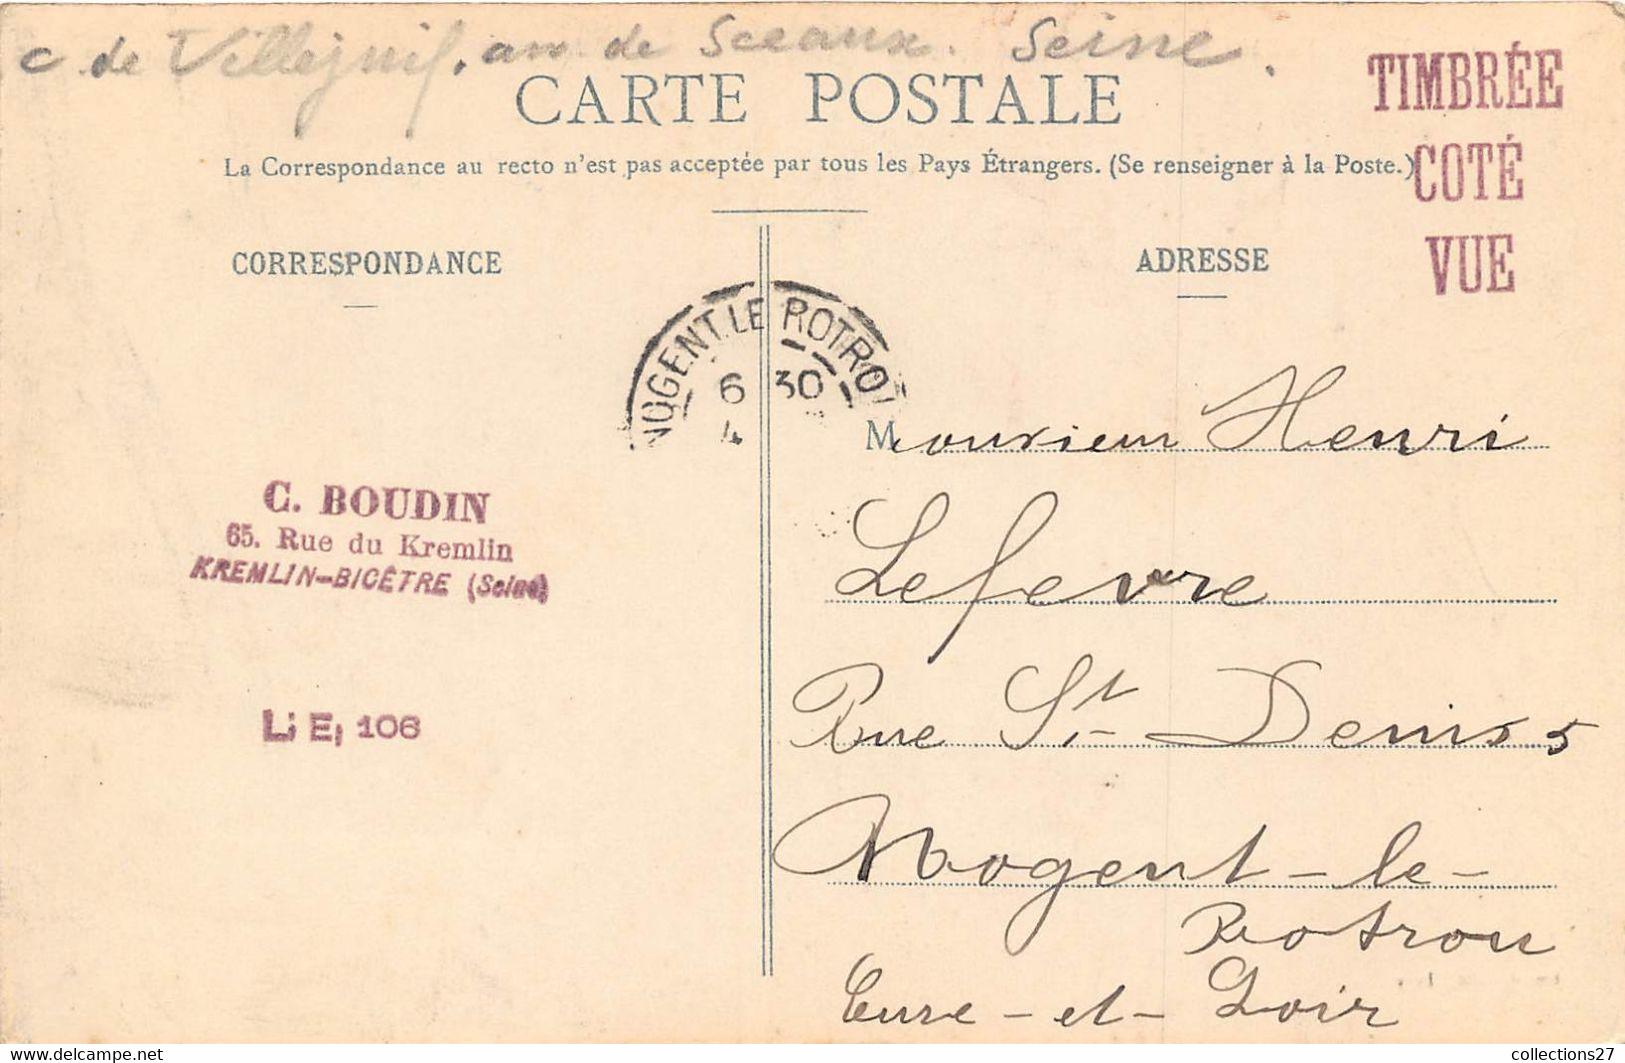 c de Villejuif. arr de Sceaux. Seine.
CARTE POSTALE
La Correspondance au recto n'est pas acceptée par tous les Pays Étrangers. (Se renseigner à la Poste.)
TIMBRÉE
COTÉ
VUE
CORRESPONDANCE
ADRESSE
NOGENT LE ROTROU
6 30
4
Monsieur Henri
Lefevre
Rue St Denis 5
Nogent-le-
Rotrou
Eure-et-Loir
C. BOUDIN
65. Rue du Kremlin
KREMLIN-BICÊTRE (Seine)
L; E, 106
collections27